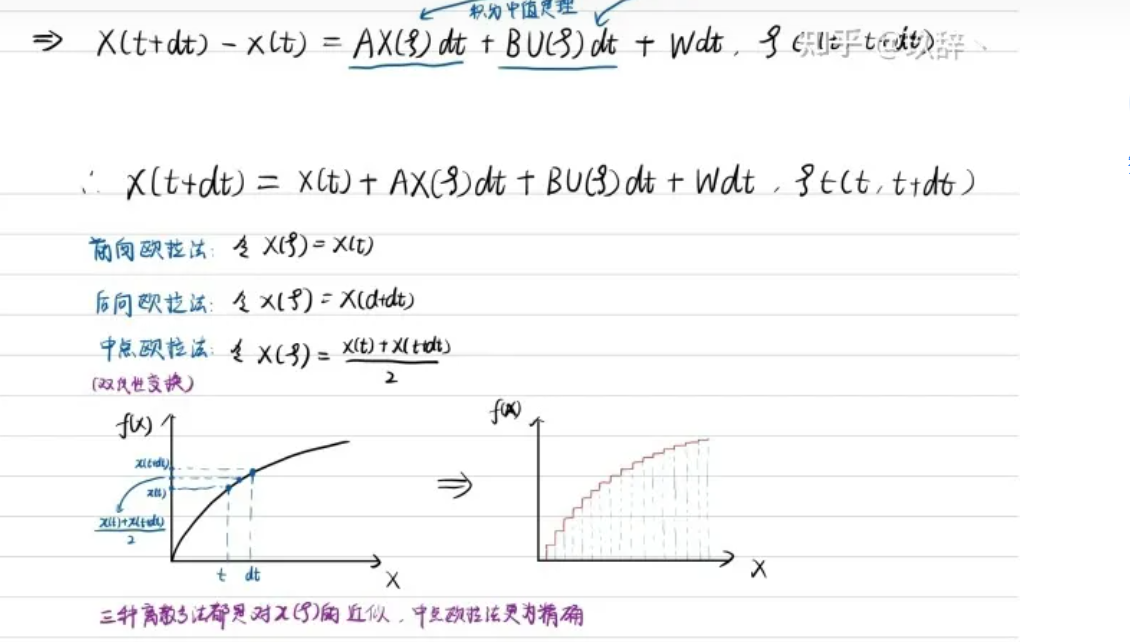 积分中值定理
⇒ X(t+dt) - X(t) = AX(ξ)dt + BU(ξ)dt + Wdt , ξ∈(t, t+dt)
知乎 @玖辞
∴ X(t+dt) = X(t) + AX(ξ)dt + BU(ξ)dt + Wdt , ξ∈(t, t+dt)
前向欧拉法: 令 X(ξ) = X(t)
后向欧拉法: 令 X(ξ) = X(d+dt)
中点欧拉法: 令 X(ξ) = (X(t) + X(t+dt))/2
(双线性变换)
f(X)
X(t+dt)
X(t)
(X(t)+X(t+dt))/2
t dt
X
⇒
f(X)
X
三种离散方法都是对X(ξ)的近似, 中点欧拉法更为精确